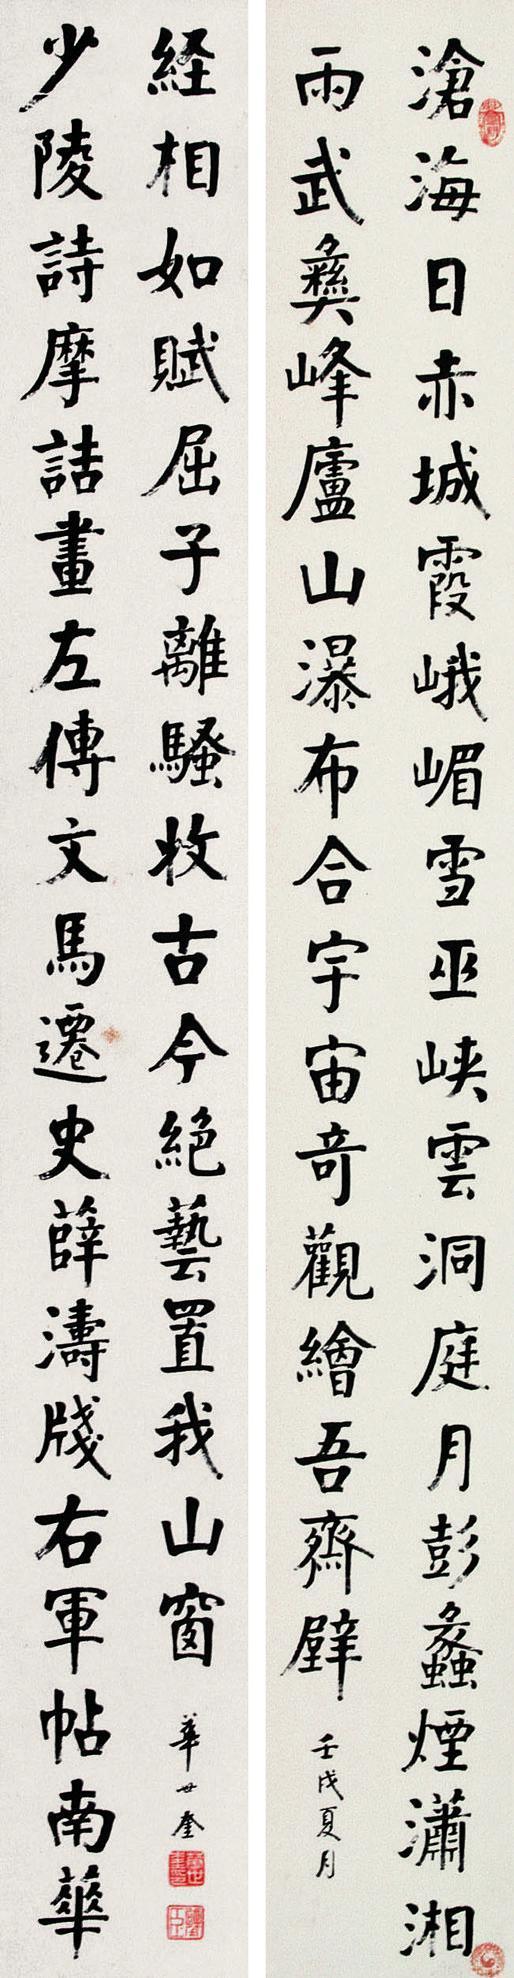 滄海日赤城霞峨嵋雪巫峽雲洞庭月彭蠡煙瀟湘
雨武彝峰廬山瀑布合宇宙奇觀繪吾齋壁
壬戌夏月
少陵詩摩詰畫左傳文馬遷史薛濤牋右軍帖南華
経相如賦屈子離騷收古今絕藝置我山窗
華世奎